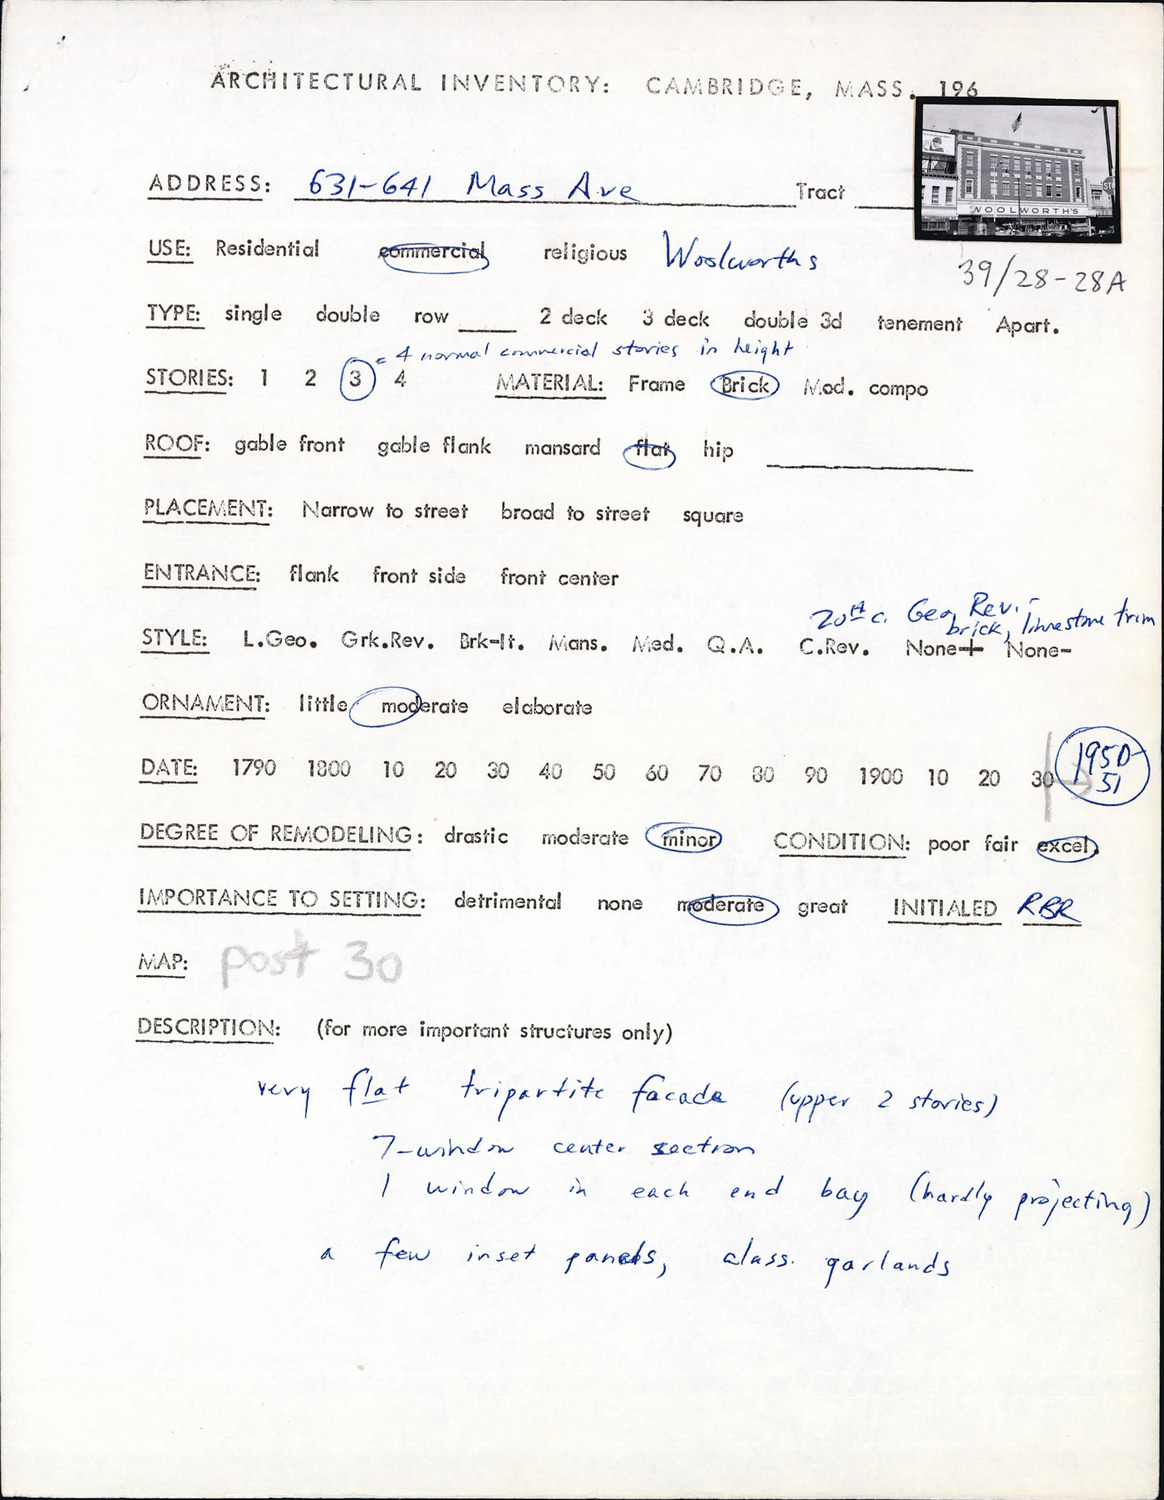 ARCHITECTURAL INVENTORY: CAMBRIDGE, MASS. 196
WOOLWORTH'S
ADDRESS: 631-641 Mass Ave Tract
USE: Residential commercial religious Woolworths
39/28-28A
TYPE: single double row 2 deck 3 deck double 3d tenement Apart.
= 4 normal commercial stories in height
STORIES: 1 2 3 4 MATERIAL: Frame Brick Mod. compo
ROOF: gable front gable flank mansard flat hip
PLACEMENT: Narrow to street broad to street square
ENTRANCE: flank front side front center
20th c. Geo. Rev. -
brick, limestone trim
STYLE: L.Geo. Grk.Rev. Brk-It. Mans. Med. Q.A. C.Rev. None+ None-
ORNAMENT: little moderate elaborate
DATE: 1790 1800 10 20 30 40 50 60 70 80 90 1900 10 20 30 1950-
51
DEGREE OF REMODELING: drastic moderate minor CONDITION: poor fair excel.
IMPORTANCE TO SETTING: detrimental none moderate great INITIALED RBR
MAP: post 30
DESCRIPTION: (for more important structures only)
very flat tripartite facade (upper 2 stories)
7-window center section
1 window in each end bay (hardly projecting)
a few inset panels, class. garlands